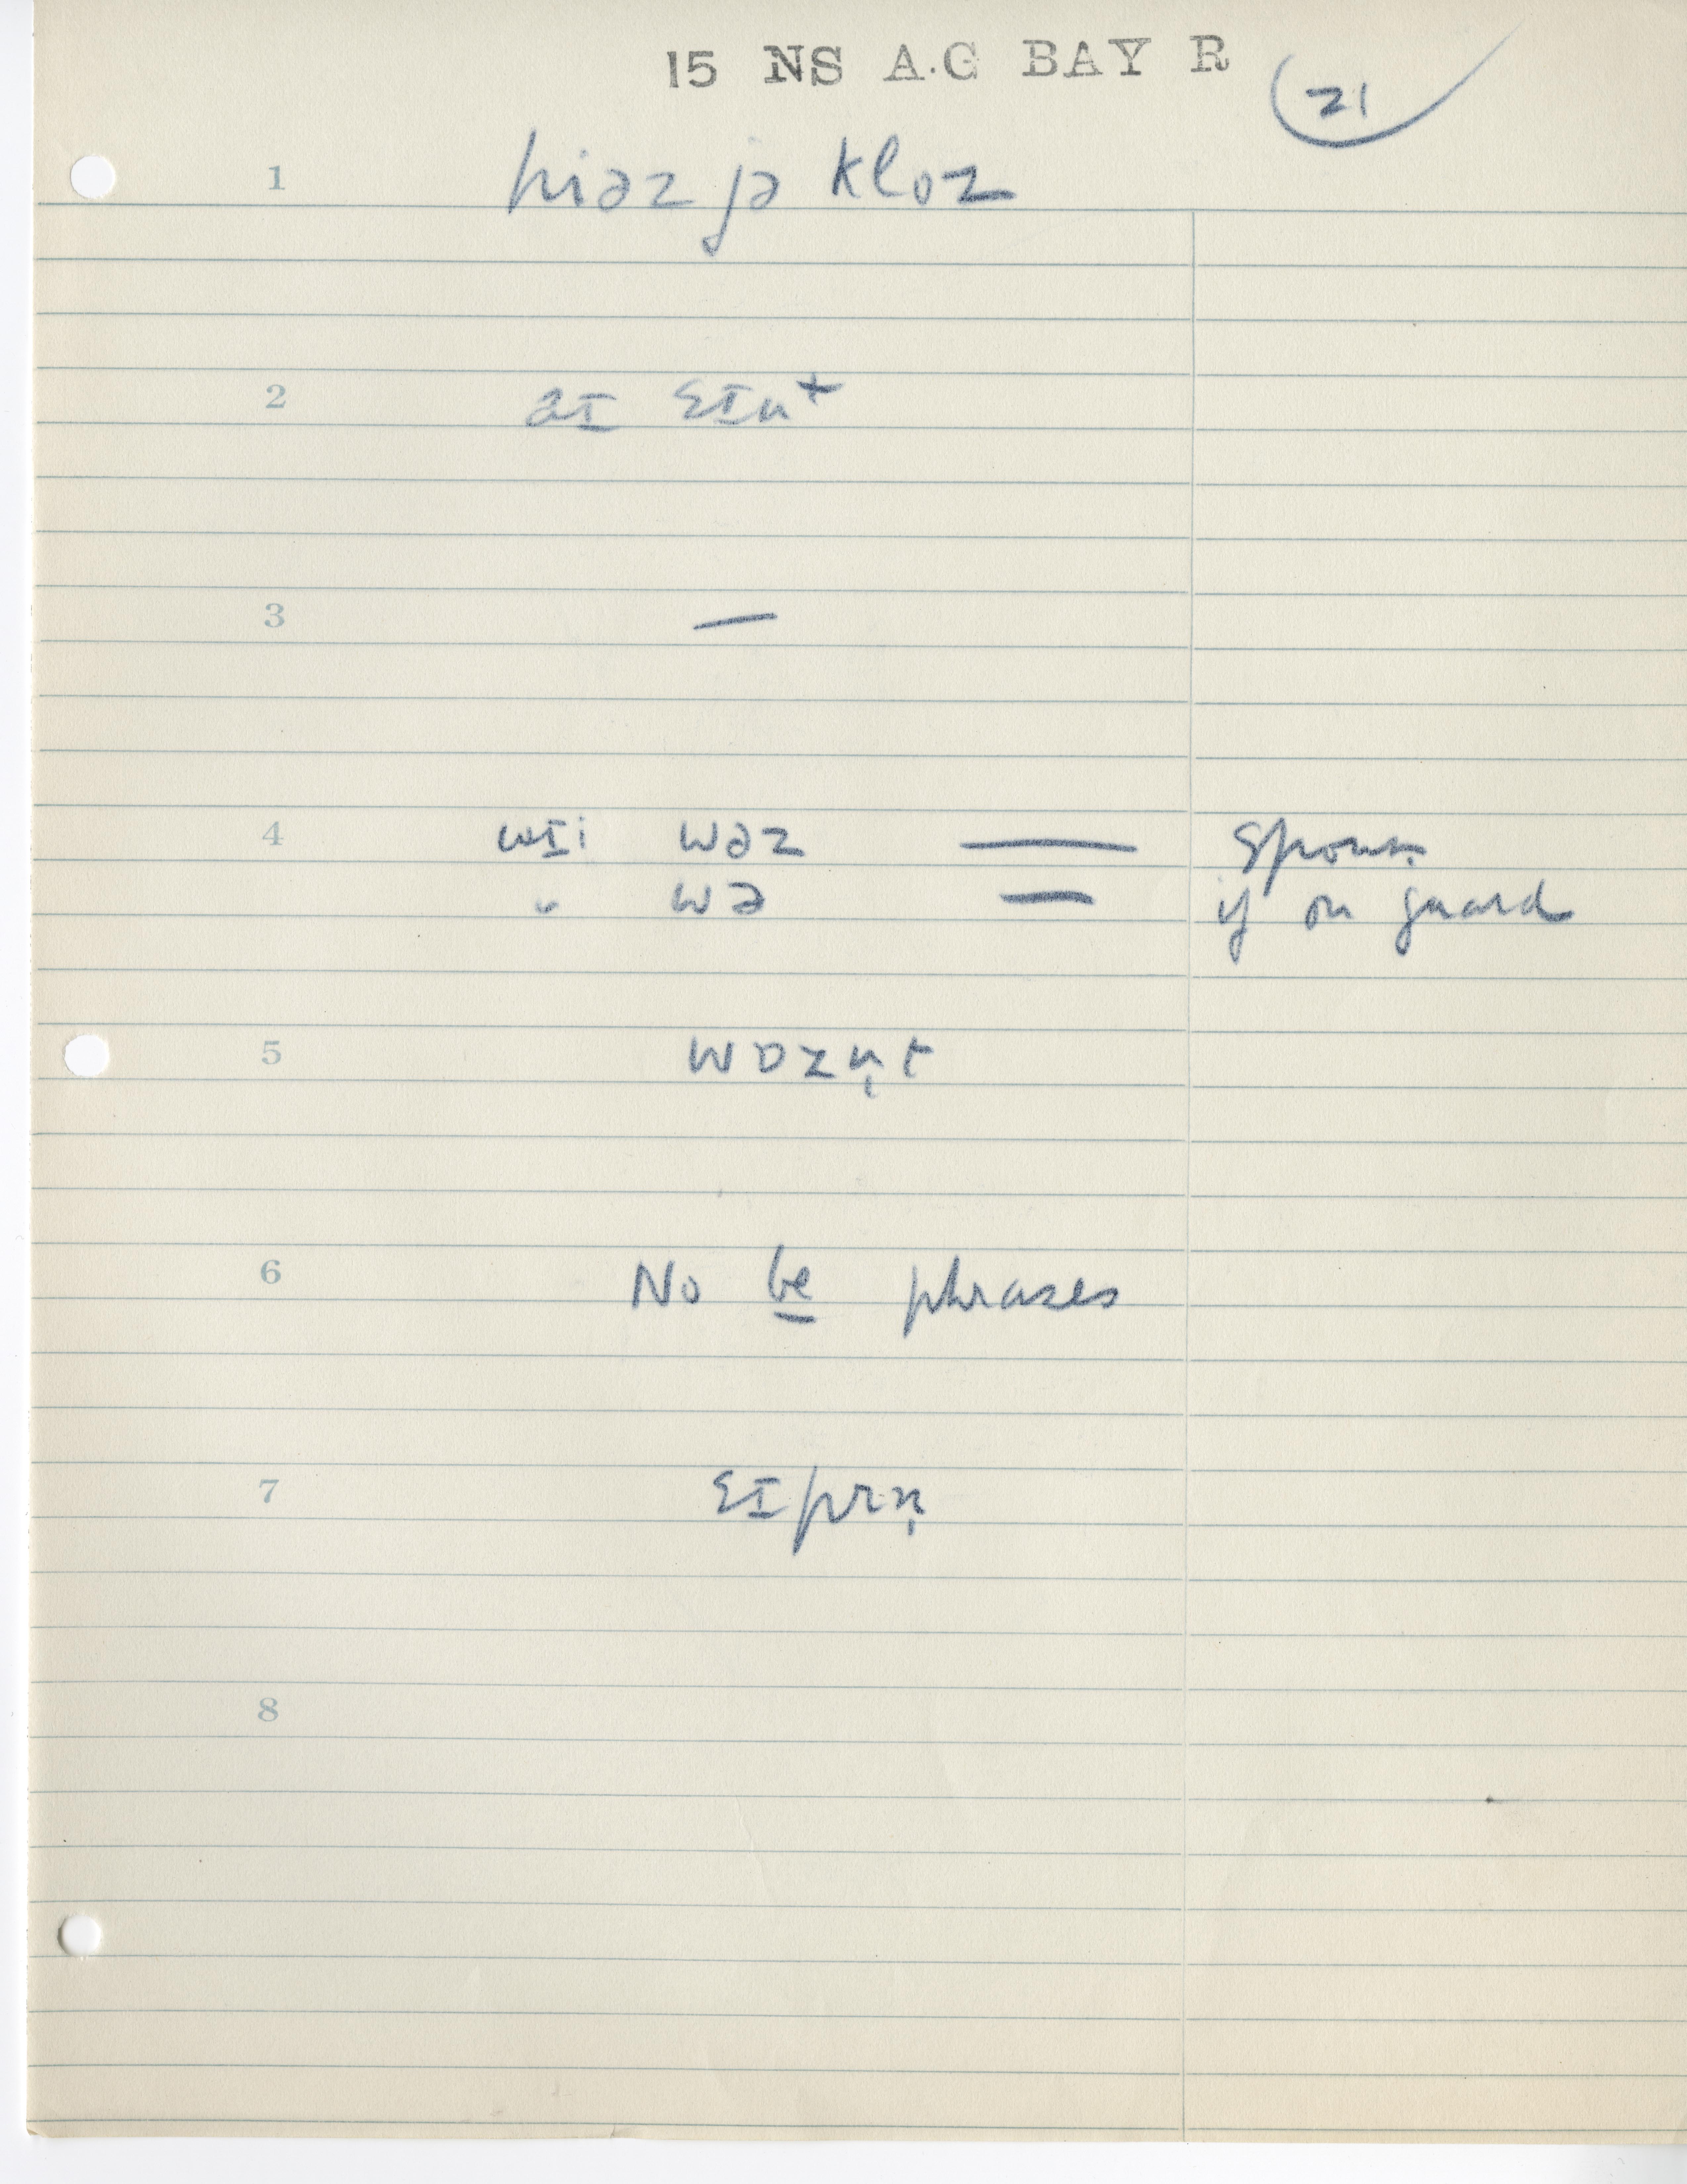 15 NS A.G BAY R
21
1 hiəz jə kloz
2 aɪ ɛɪnt
3 —
4 wɪi wəz — spontn.
" wə — if on guard
5 wɒzn̩t
6 No be phrases
7 ɛɪprn̩
8